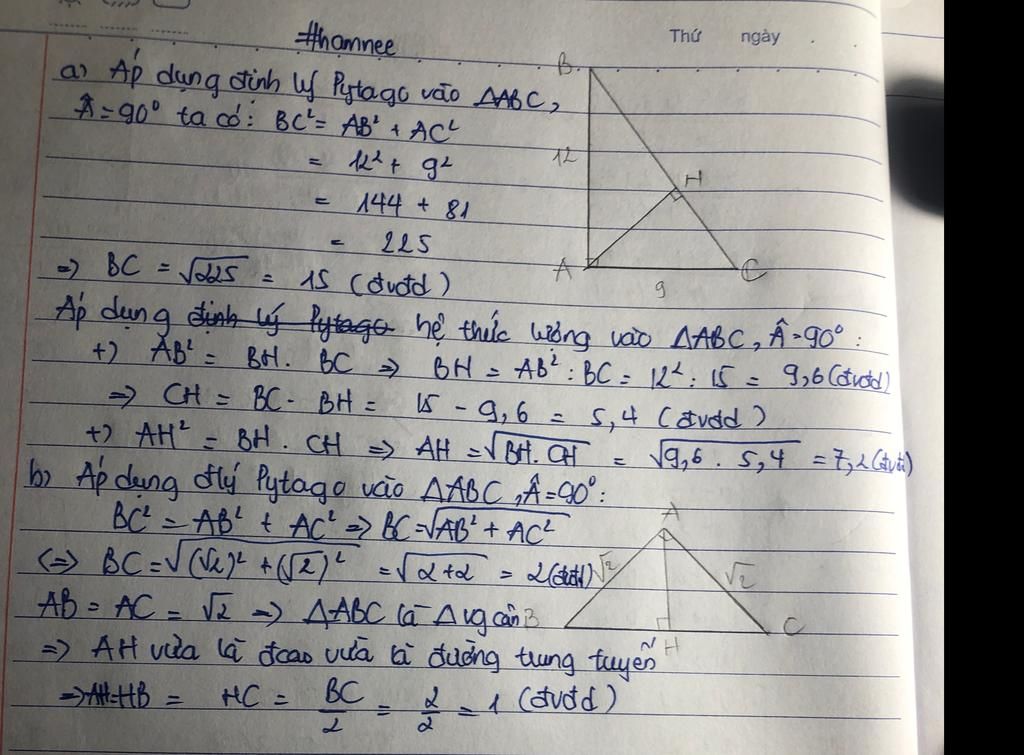 #hamnee
Thứ ngày
a) Áp dụng định lý Pytago vào ΔABC,
Â=90° ta có: BC² = AB² + AC²
= 12² + 9²
= 144 + 81
= 225
=> BC = √225 = 15 (đvđd)
Áp dụng định lý Pytago hệ thức lượng vào ΔABC, Â=90°:
+) AB² = BH. BC => BH = AB² : BC = 12² : 15 = 9,6 (đvđd)
=> CH = BC - BH = 15 - 9,6 = 5,4 (đvđd)
+) AH² = BH . CH => AH = √BH. CH = √9,6 . 5,4 = 7,2 (đvđd)
b) Áp dụng đlý Pytago vào ΔABC, Â=90°:
BC² = AB² + AC² => BC = √AB² + AC²
<=> BC = √(√2)² + (√2)² = √2+2 = 2 (đvđd)
AB = AC = √2 => ΔABC là Δ vg cân
=> AH vừa là đcao vừa là đường trung tuyến
=> AH=HB = HC = BC/2 = 2/2 = 1 (đvđd)
B
12
H
A
C
9
A
√2
√2
B
H
C